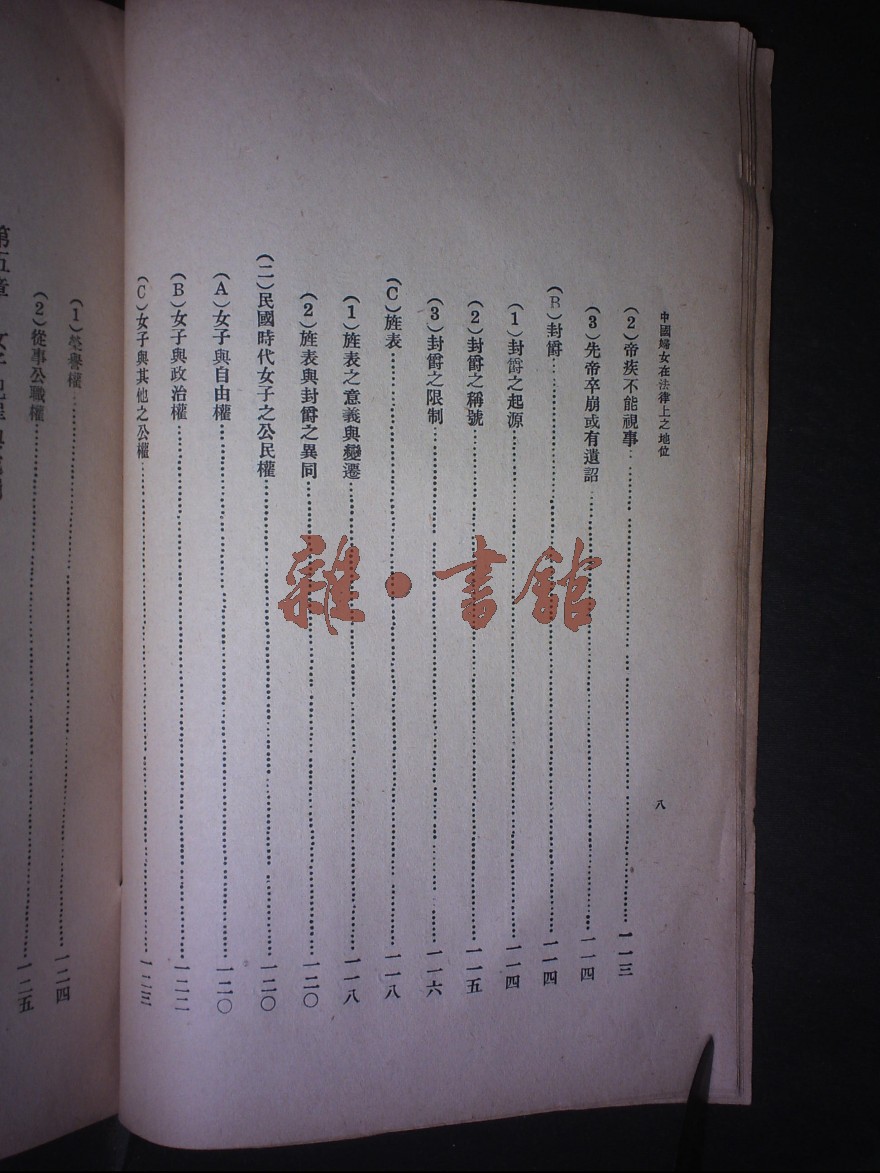 中國婦女在法律上之地位
八
(2)帝疾不能視事……一一三
(3)先帝卒崩或有遺詔……一一四
(B)封爵……一一四
(1)封爵之起源……一一四
(2)封爵之稱號……一一五
(3)封爵之限制……一一六
(C)旌表……一一八
(1)旌表之意義與變遷……一一八
(2)旌表與封爵之異同……一二〇
(二)民國時代女子之公民權……一二〇
(A)女子與自由權……一二〇
(B)女子與政治權……一二二
(C)女子與其他之公權……一二三
(1)榮譽權……一二四
(2)從事公職權……一二五
第五章
雜·書館